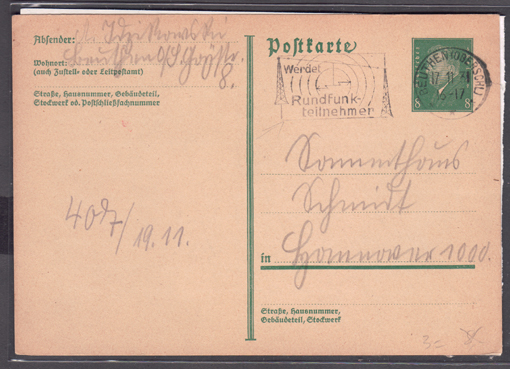 Absender: Idzikowski
Wohnort: Beuthen O/S
(auch Zustell- oder Leitpostamt) 8.
Straße, Hausnummer, Gebäudeteil,
Stockwerk od. Postschließfachnummer
4087/19.11.
Postkarte
Werdet
Rundfunk-
teilnehmer
BEUTHEN (OBERSCHL)
17.11.31
-17
8 8
Sammthaus
Schmidt
in Hannover 1000.
Straße, Hausnummer,
Gebäudeteil, Stockwerk
3=